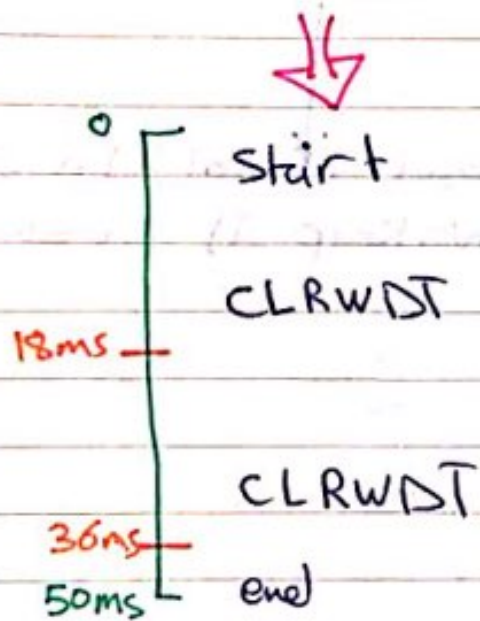 0
Start
CLRWDT
18ms
CLRWDT
36ms
50ms end